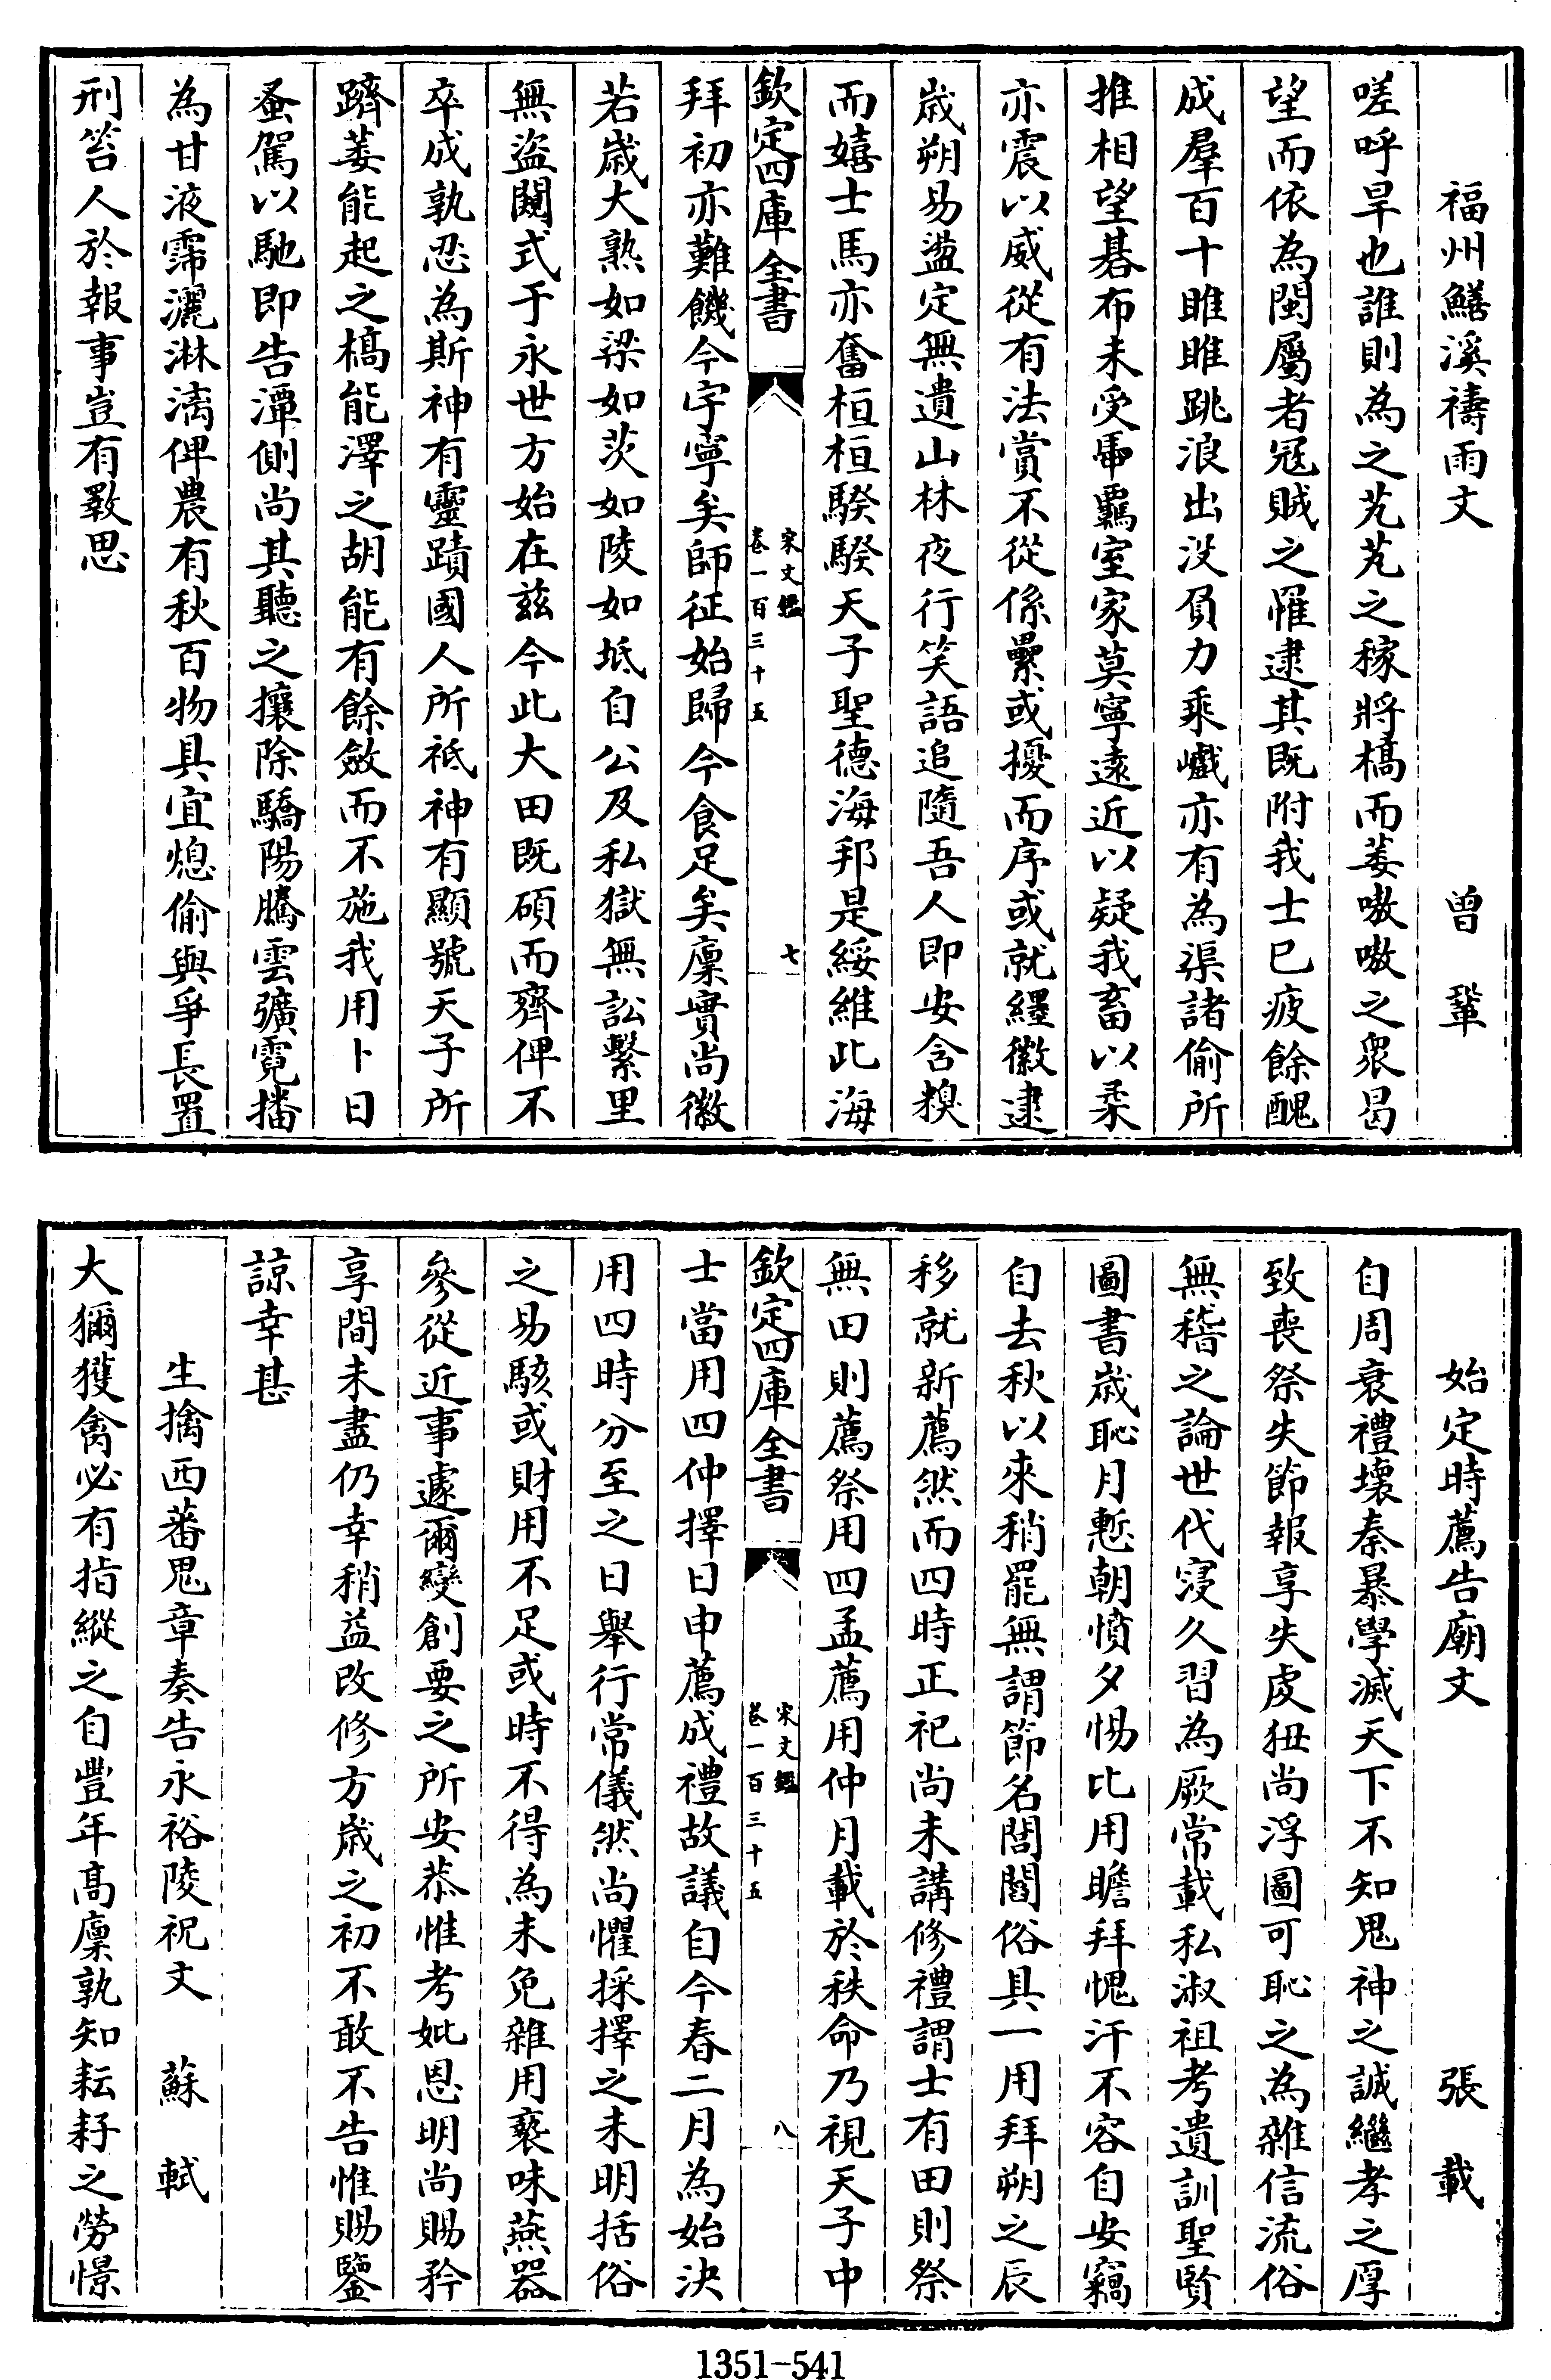 福州鱔溪禱雨文　曾鞏
嗟呼旱也誰則為之芃芃之稼將槁而萎嗷嗷之衆曷
望而依為閩屬者冦賊之罹逮其既附我士已疲餘醜
成羣百十睢睢跳浪出没負力乘巇亦有為渠諸偷所
推相望碁布未受馽羈室家莫寧逺近以疑我畜以柔
亦震以威從有法賞不從係纍或擾而序或就纆徽逮
歳朔易盪定無遺山林夜行笑語追隨吾人即安含糗
而嬉士馬亦奮桓桓騤騤天子聖德海邦是綏維此海
欽定四庫全書
宋文鑑
卷一百三十五
七
拜初亦難饑今宇寧矣師征始歸今食足矣廩實尚微
若歳大熟如梁如茨如陵如坻自公及私獄無訟繫里
無盜闚式于永世方始在兹今此大田既碩而齊俾不
卒成孰忍為斯神有靈蹟國人所祗神有顯號天子所
躋萎能起之槁能澤之胡能有餘斂而不施我用卜日
蚤駕以馳即告潭側尚其聽之攘除驕陽騰雲彍霓播
為甘液霈灑淋漓俾農有秋百物具宜熄偷與爭長置
刑笞人於報事豈有斁思
始定時薦告廟文　張載
自周衰禮壊秦暴學滅天下不知鬼神之誠繼孝之厚
致喪祭失節報享失䖏狃尚浮圖可恥之為雜信流俗
無稽之論世代寖久習為厥常載私淑祖考遺訓聖賢
圖書歳恥月慙朝憤夕惕比用瞻拜愧汗不容自安竊
自去秋以來稍罷無謂節名閭閻俗具一用拜朔之辰
移就新薦然而四時正祀尚未講修禮謂士有田則祭
無田則薦祭用四孟薦用仲月載於秩命乃視天子中
欽定四庫全書
宋文鑑
卷一百三十五
八
士當用四仲擇日申薦成禮故議自今春二月為始決
用四時分至之日舉行常儀然尚懼採擇之未明括俗
之易駭或財用不足或時不得為未免雜用䙝味燕器
參從近事遽爾變創要之所安恭惟考妣恩明尚賜矜
享間未盡仍幸稍益改修方歳之初不敢不告惟賜鑒
諒幸甚
生擒西蕃鬼章奏告永裕陵祝文　蘇軾
大獮獲禽必有指縱之自豐年髙廩孰知耘耔之勞憬
1351-541